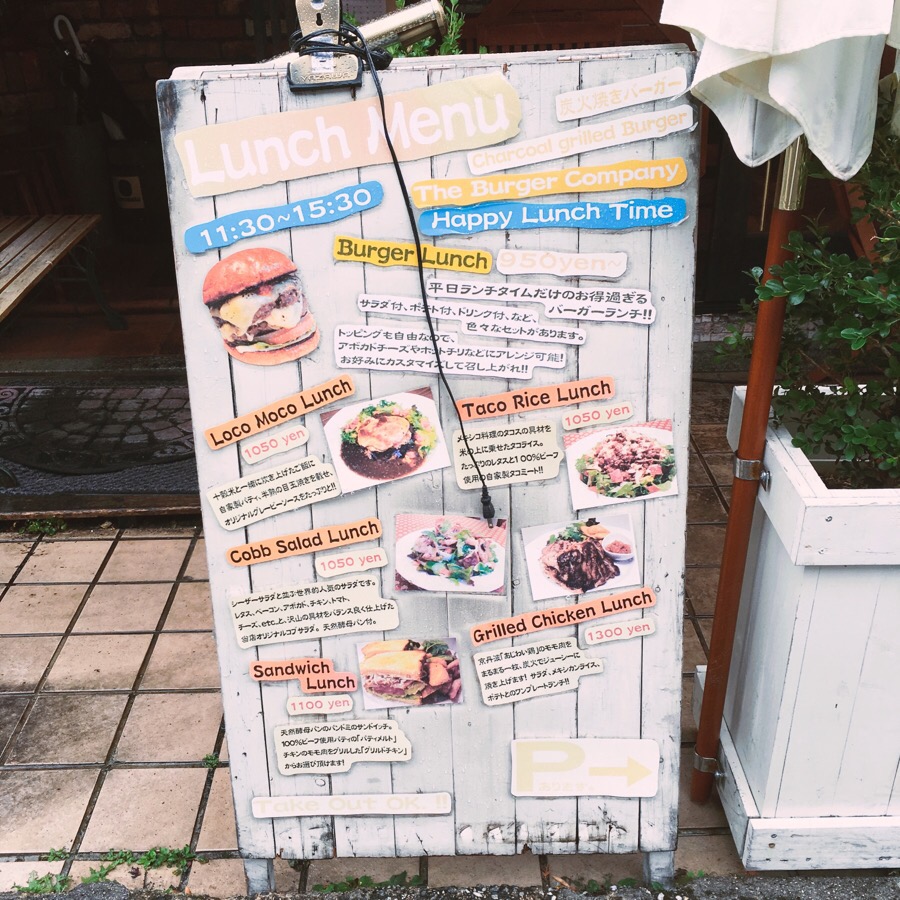 Lunch Menu
炭火焼きバーガー
Charcoal grilled Burger
The Burger Company
11:30~15:30
Happy Lunch Time
Burger Lunch
950yen~
平日ランチタイムだけのお得過ぎる
バーガーランチ!!
サラダ付、ポテト付、ドリンク付、など、
色々なセットがあります。
トッピングも自由なので、
アボカドチーズやホットチリなどにアレンジ可能!
お好みにカスタマイズして召し上がれ!!
Loco Moco Lunch
1050 yen
十穀米と一緒に炊き上げたご飯に
自家製パティ、半熟の目玉焼きを載せ、
オリジナルグレービーソースをたっぷりと!!
Taco Rice Lunch
1050 yen
メキシコ料理のタコスの具材を
米の上に乗せたタコライス。
たっぷりのレタスと100%ビーフ
使用の自家製タコミート!!
Cobb Salad Lunch
1050 yen
シーザーサラダと並ぶ世界的人気のサラダです。
レタス、ベーコン、アボカド、チキン、トマト、
チーズ、etc.と、沢山の具材をバランス良く仕上げた
当店オリジナルコブサラダ。天然酵母パン付。
Grilled Chicken Lunch
1300 yen
京丹波「あじわい鶏」のモモ肉を
まるまる一枚、炭火でジューシーに
焼き上げます! サラダ、メキシカンライス、
ポテトとのワンプレートランチ!!
Sandwich
Lunch
1100 yen
天然酵母パンのパンドミのサンドイッチ。
100%ビーフ使用パティの「パティメルト」
チキンのモモ肉をグリルした「グリルドチキン」
からお選び頂けます!
P→
あります
Take Out OK. !!